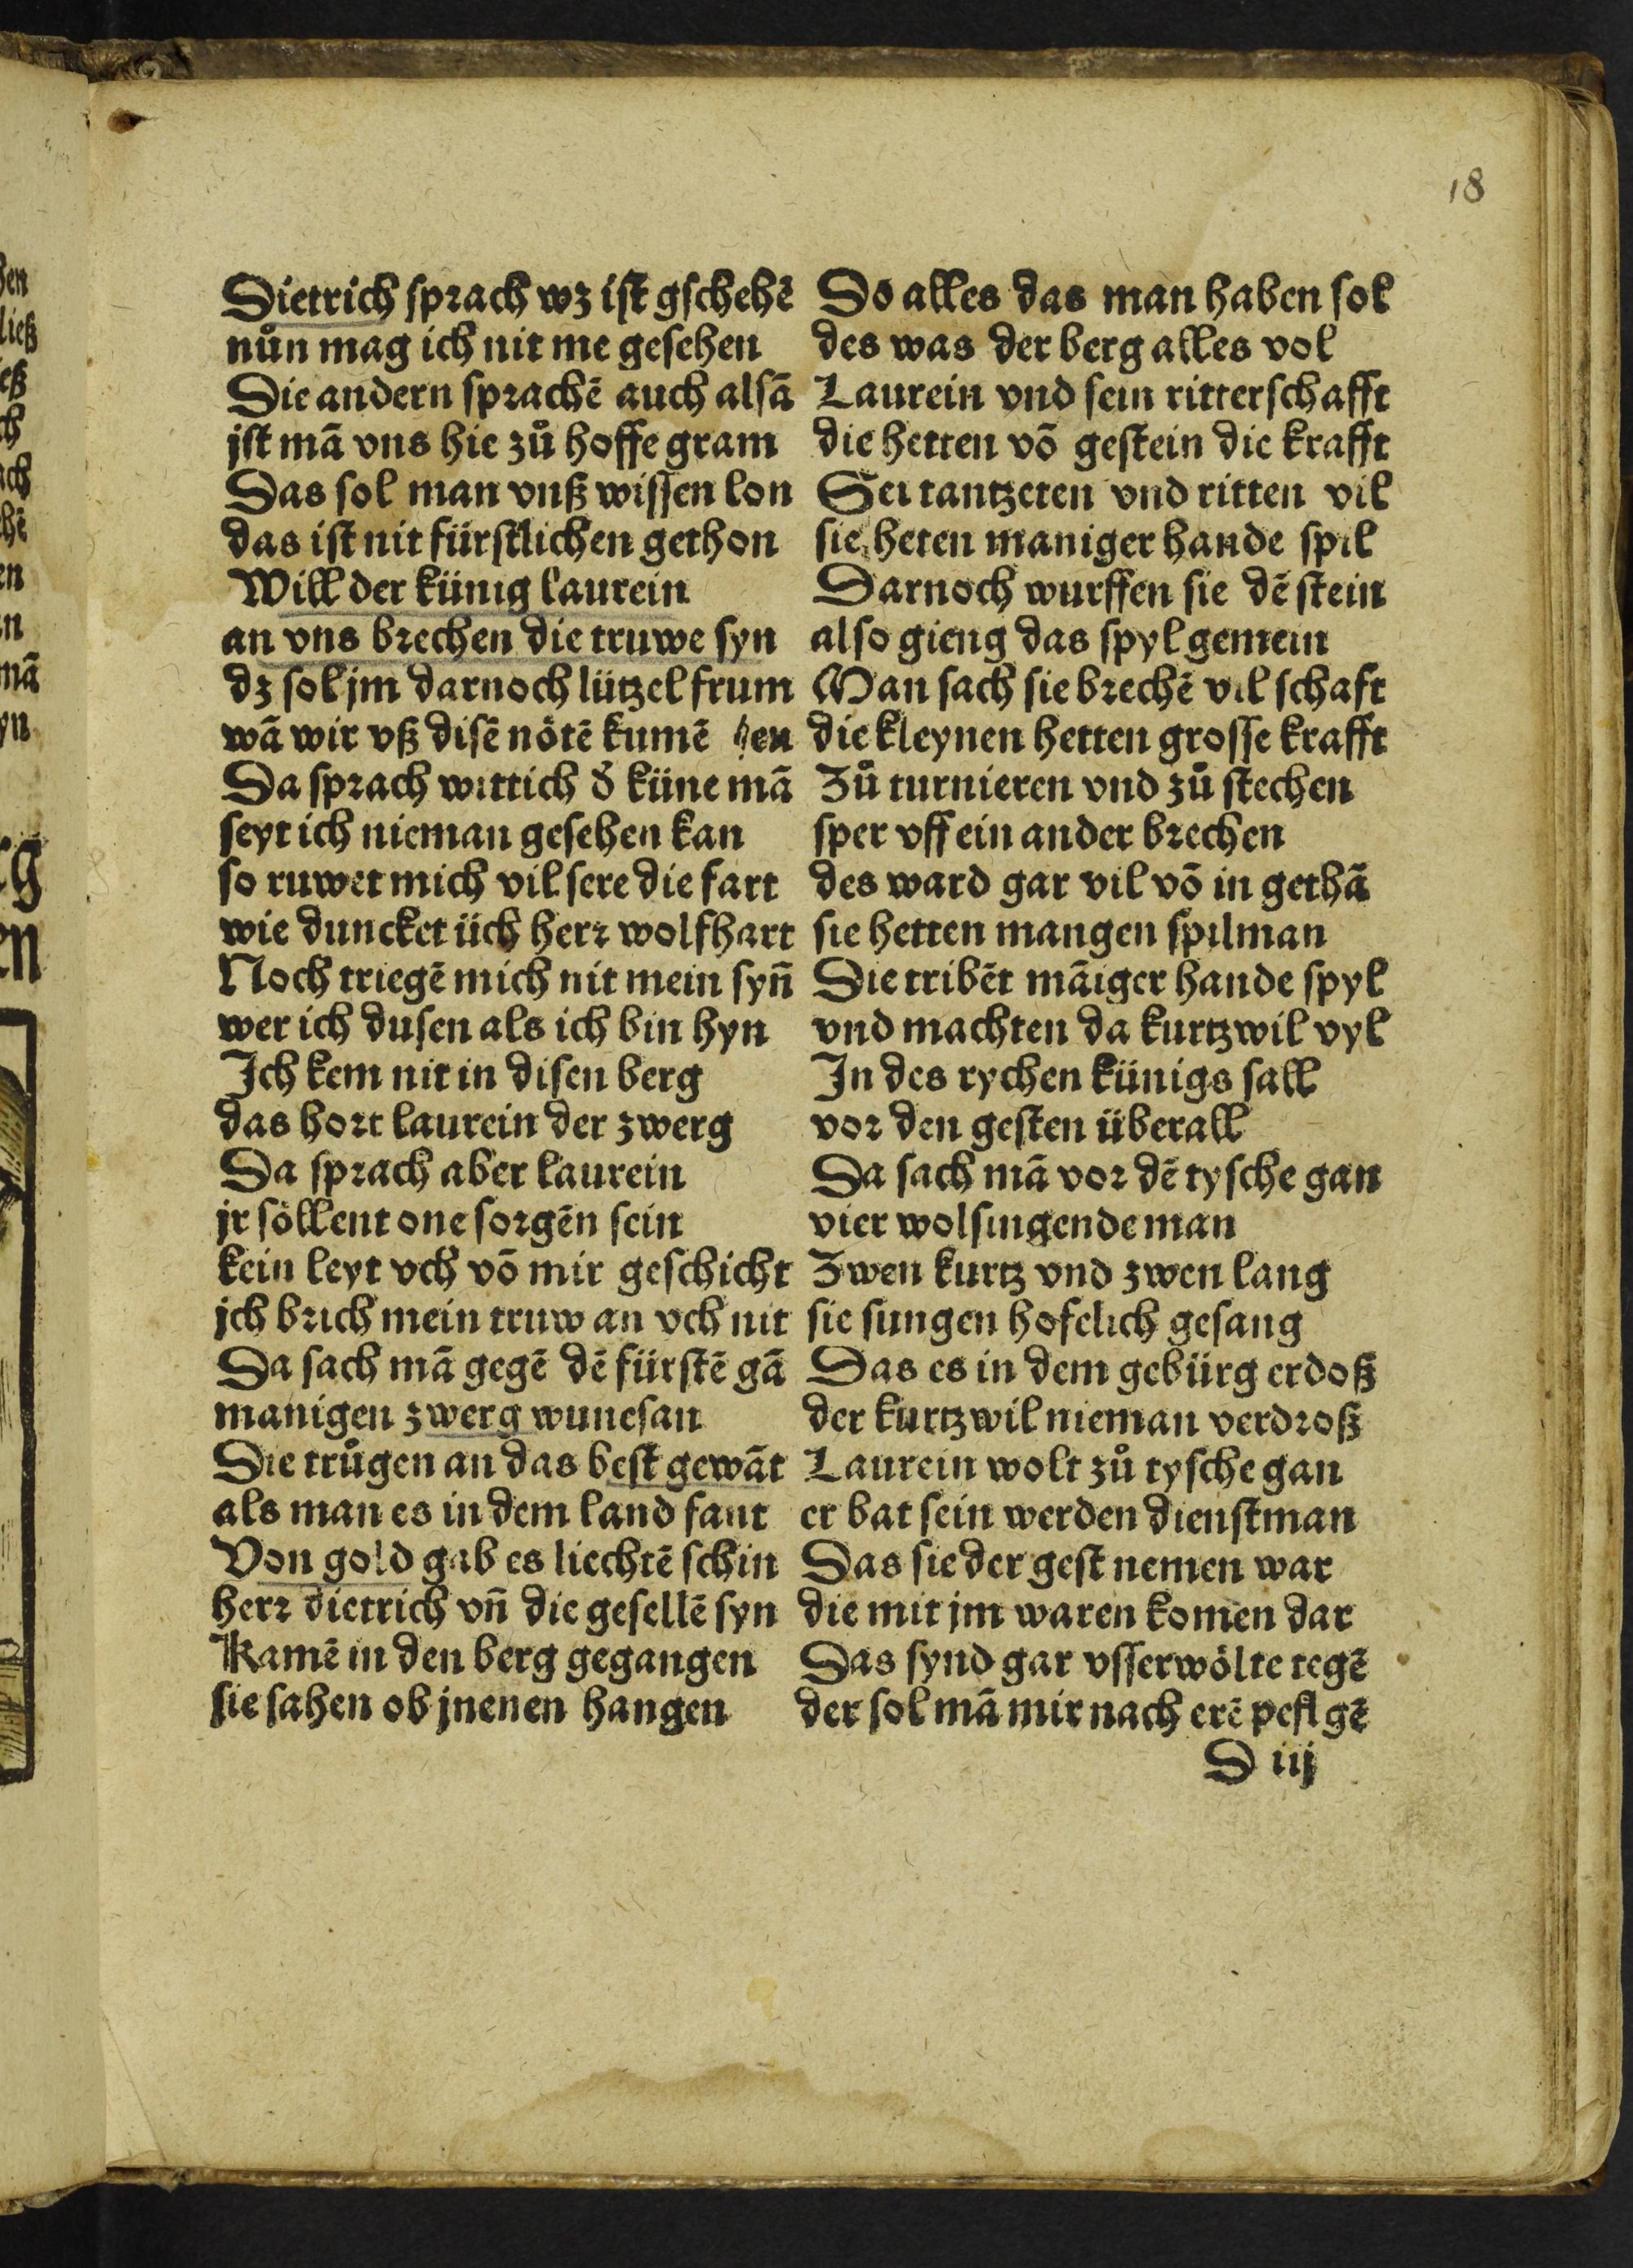 18
Dietrich sprach wz ist gschehē
nůn mag ich nit me gesehen
Die andern sprachē auch alsā
jst mā vns hie zů hoffe gram
Das sol man vnß wissen lon
das ist nit fürstlichen gethon
Will der künig laurein
an vns brechen die truwe syn
dz sol jm darnoch lützel frum
wā wir vß disē nötē kumē
Da sprach wittich ð küne mā
seyt ich nieman gesehen kan
so ruwet mich vil sere die fart
wie duncket üch herr wolfhart
Noch triegē mich nit mein syn̄
wer ich dusen als ich bin hyn
Ich kem nit in disen berg
das hort laurein der zwerg
Da sprach aber laurein
jr söllent one sorgēn sein
kein leyt vch vō mir geschicht
jch brich mein truw an vch nit
Da sach mā gegē dē fürstē gā
manigen zwerg wunesan
Die trůgen an das best gewāt
als man es in dem land fant
Von gold gab es liechtē schin
herr dietrich vn̄ die gesellē syn
Kamē in den berg gegangen
sie sahen ob jnenen hangen
So alles das man haben sol
des was der berg alles vol
Laurein vnd sein ritterschafft
die hetten vō gestein die krafft
Sei tantzeten vnd ritten vil
sie heten maniger hande spil
Darnoch wurffen sie dē stein
also gieng das spyl gemein
Man sach sie brechē vil schaft
die kleynen hetten grosse krafft
Zů turnieren vnd zů stechen
sper vff ein ander brechen
des ward gar vil vō in gethā
sie hetten mangen spilman
Die tribēt māiger hande spyl
vnd machten da kurtzwil vyl
In des rychen künigs sall
vor den gesten überall
Da sach mā vor dē tysche gan
vier wolsingende man
Zwen kurtz vnd zwen lang
sie sungen hofelich gesang
Das es in dem gebürg erdoß
der kurtzwil nieman verdroß
Laurein wolt zů tysche gan
er bat sein werden dienstman
Das sie der gest nemen war
die mit jm waren komen dar
Das synd gar vsserwölte tegē
der sol mā mir nach erē peflgē
D iij